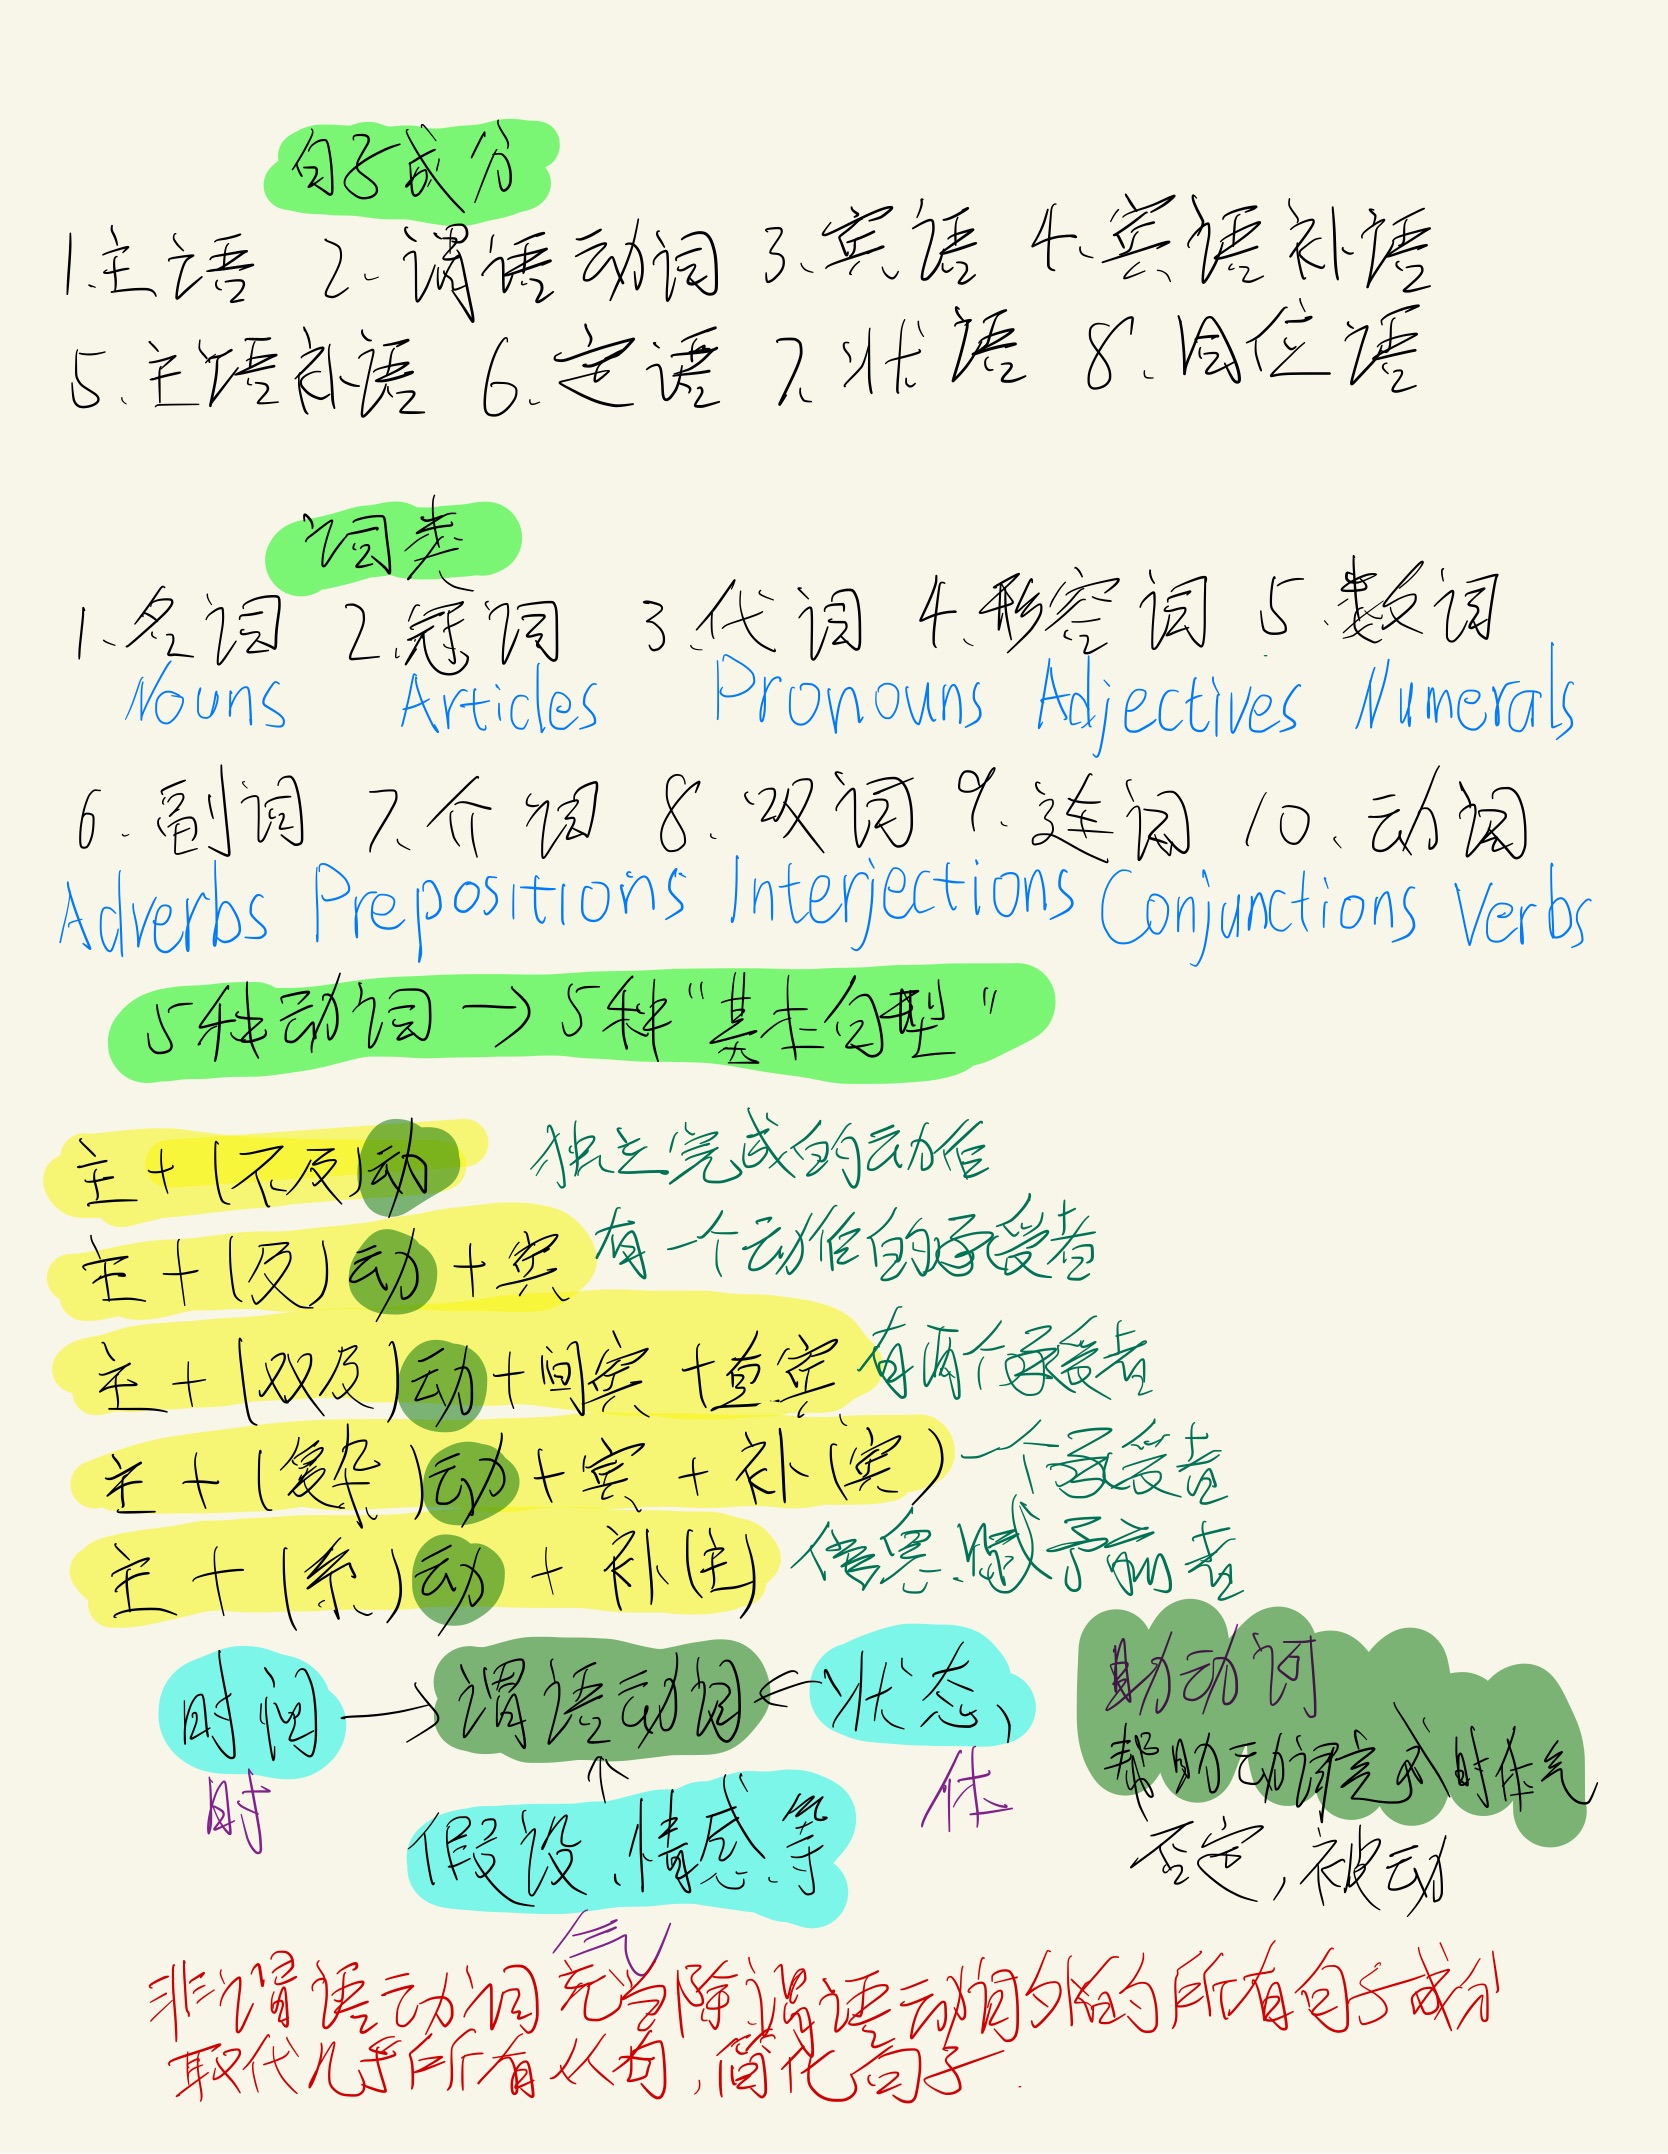 句子成分
1.主语 2.谓语动词 3.宾语 4.宾语补语
5.主语补语 6.定语 7.状语 8.同位语
词类
1.名词 2.冠词 3.代词 4.形容词 5.数词
Nouns Articles Pronouns Adjectives Numerals
6.副词 7.介词 8.叹词 9.连词 10.动词
Adverbs Prepositions Interjections Conjunctions Verbs
5种动词→5种"基本句型"
主+(不及)动 独立完成的动作
主+(及)动+宾 有一个动作的承受者
主+(双及)动+间宾+直宾 有两个承受者
主+(复杂)动+宾+补(宾) 一个承受者
主+(系)动+补(主) 信息、赋予前者
时间→谓语动词←状态、 助动词
帮助动词完成时体气
时 体
假设、情感、等 否定,被动
气
非谓语动词充当除谓语动词外的所有句子成分
取代几乎所有从句,简化句子.